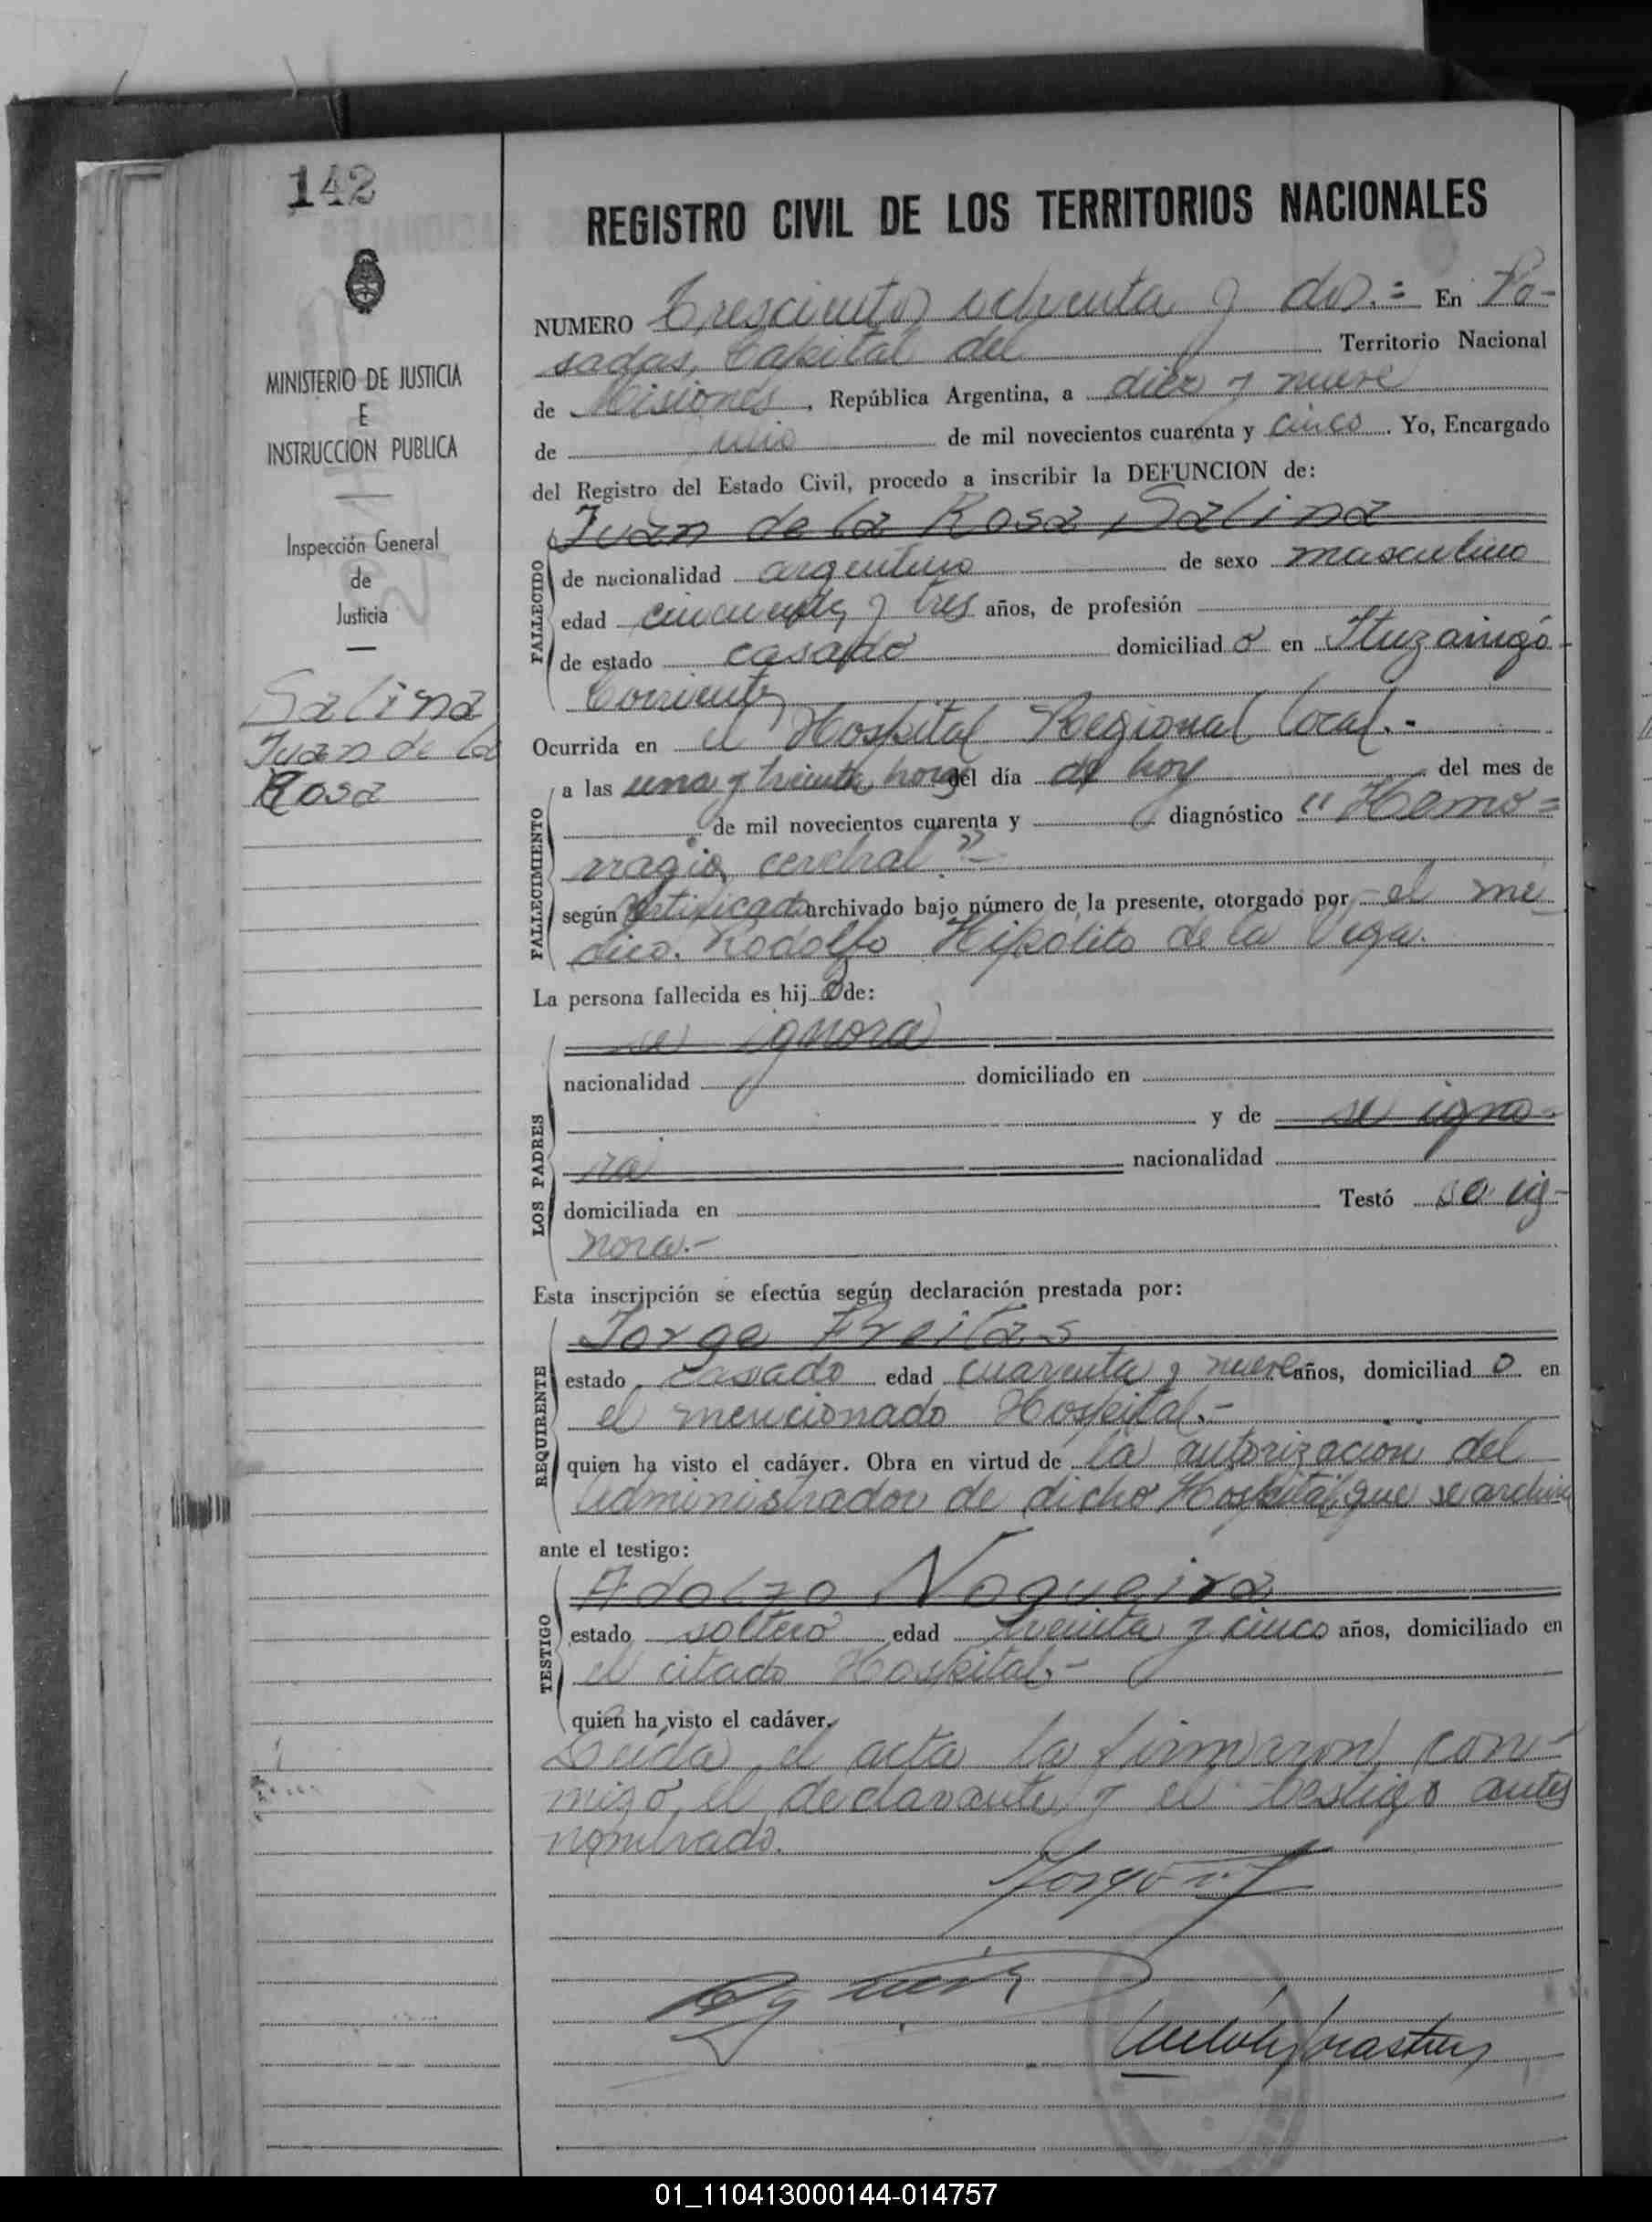 142
MINISTERIO DE JUSTICIA
E
INSTRUCCION PUBLICA
Inspección General
de
Justicia
Salina
Juan de la
Rosa
REGISTRO CIVIL DE LOS TERRITORIOS NACIONALES
NUMERO Trescientos ochenta y dos.= En Po-
sadas, Capital del Territorio Nacional
de Misiones, República Argentina, a diez y nueve
de Julio de mil novecientos cuarenta y cinco. Yo, Encargado
del Registro del Estado Civil, procedo a inscribir la DEFUNCION de:
Juan de la Rosa Salina
FALLECIDO
de nacionalidad argentino de sexo masculino
edad cincuenta y tres años, de profesión
de estado casado domiciliado en Ituzaingó-
Corrientes
Ocurrida en el Hospital Regional local.-
FALLECIMIENTO
a las una y treinta horas del día de hoy del mes de
de mil novecientos cuarenta y diagnóstico "Hemo=
rragia cerebral".-
según certificado archivado bajo número de la presente, otorgado por el mé
dico. Rodolfo Hipólito de la Vega.
La persona fallecida es hijo de:
LOS PADRES
se ignora
nacionalidad domiciliado en
y de se igno-
ra nacionalidad
domiciliada en Testó se ig-
nora.-
Esta inscripción se efectúa según declaración prestada por:
REQUIRENTE
Jorge Freitas
estado casado edad cuarenta y nueve años, domiciliado en
el mencionado Hospital.-
quien ha visto el cadáver. Obra en virtud de la autorización del
Administrador de dicho Hospital que se archiva
ante el testigo:
TESTIGO
Adolfo Nogueira
estado soltero edad treinta y cinco años, domiciliado en
el citado Hospital.-
quien ha visto el cadáver.
Leída el acta la firmaron con-
migo el declarante y el testigo antes
nombrado.
01_110413000144-014757